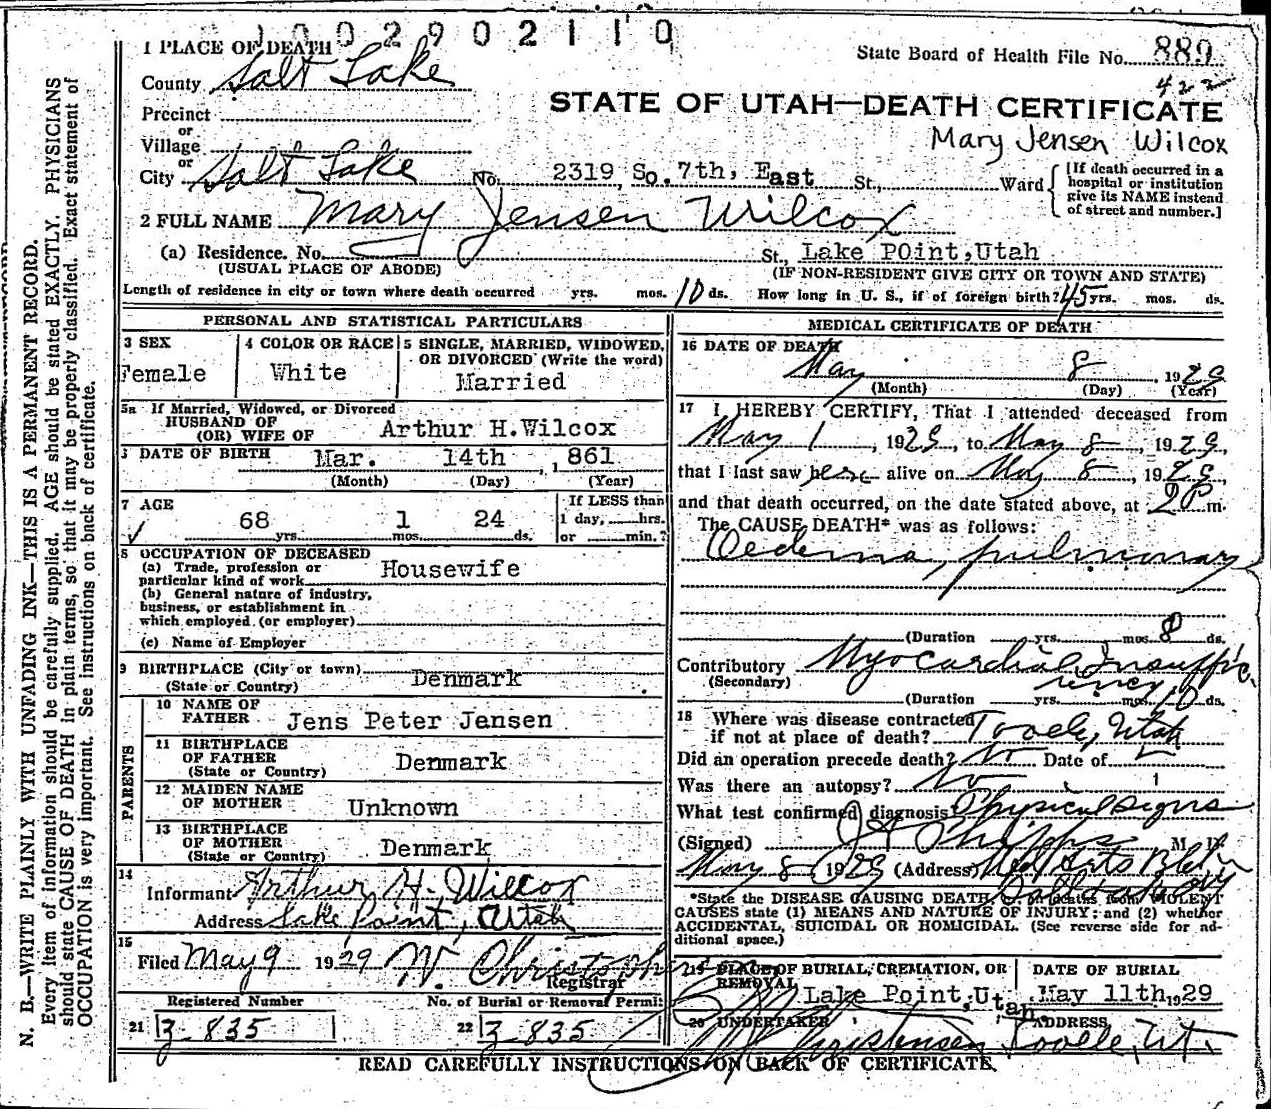 1002902110
State Board of Health File No. 889
422
1 PLACE OF DEATH
County Salt Lake
STATE OF UTAH—DEATH CERTIFICATE
Precinct
or
Village
Mary Jensen Wilcox
or
City Salt Lake No. 2319 So. 7th, East St., Ward
[If death occurred in a
hospital or institution
give its NAME instead
of street and number.]
2 FULL NAME Mary Jensen Wilcox
(a) Residence. No. St., Lake POint, Utah
(USUAL PLACE OF ABODE) (IF NON-RESIDENT GIVE CITY OR TOWN AND STATE)
Length of residence in city or town where death occurred yrs. mos. 10 ds. How long in U. S., if of foreign birth? 45 yrs. mos. ds.
PERSONAL AND STATISTICAL PARTICULARS
3 SEX
Female
4 COLOR OR RACE
White
5 SINGLE, MARRIED, WIDOWED,
OR DIVORCED (Write the word)
Married
5a If Married, Widowed, or Divorced
HUSBAND OF
(OR) WIFE OF Arthur H. Wilcox
DATE OF BIRTH Mar. 14th, 1861
(Month) (Day) (Year)
7 AGE
68 yrs. 1 mos. 24 ds.
If LESS than
1 day, hrs.
or min.?
8 OCCUPATION OF DECEASED
(a) Trade, profession or
particular kind of work Housewife
(b) General nature of industry,
business, or establishment in
which employed (or employer)
(c) Name of Employer
9 BIRTHPLACE (City or town) Denmark
(State or Country)
PARENTS
10 NAME OF
FATHER Jens Peter Jensen
11 BIRTHPLACE
OF FATHER Denmark
(State or Country)
12 MAIDEN NAME
OF MOTHER Unknown
13 BIRTHPLACE
OF MOTHER Denmark
(State or Country)
14
Informant Arthur H. Wilcox
Address Lake Point, Utah
15
Filed May 9 1929 W. Christopherson
Registrar
Registered Number No. of Burial or Removal Permit
21 3-835 22 3-835
MEDICAL CERTIFICATE OF DEATH
16 DATE OF DEATH
May 8, 1929
(Month) (Day) (Year)
17 I HEREBY CERTIFY, That I attended deceased from
May 1, 1929, to May 8, 1929
that I last saw her alive on May 8, 1929,
and that death occurred, on the date stated above, at 2 P m.
The CAUSE DEATH* was as follows:
Oedema, pulmonary
(Duration yrs. mos. 8 ds.
Contributory Myocardial Insuffic
(Secondary) iency
(Duration yrs. mos. 10 ds.
18 Where was disease contracted
if not at place of death? Tooele, Utah
Did an operation precede death? No Date of
Was there an autopsy? No
What test confirmed diagnosis Physical signs
(Signed) J A Phipps M. D.
May 8 1929 (Address) Med Arts Bldg
Salt Lake City
*State the DISEASE CAUSING DEATH, or deaths from VIOLENT
CAUSES state (1) MEANS AND NATURE OF INJURY; and (2) whether
ACCIDENTAL, SUICIDAL OR HOMICIDAL. (See reverse side for ad-
ditional space.)
19 PLACE OF BURIAL, CREMATION, OR
REMOVAL
Lake Point, Utah.
DATE OF BURIAL
May 11th, 1929
20 UNDERTAKER
Christensen
ADDRESS
Tooele, Ut.
READ CAREFULLY INSTRUCTIONS ON BACK OF CERTIFICATE.
N. B.—WRITE PLAINLY WITH UNFADING INK—THIS IS A PERMANENT RECORD.
Every item of information should be carefully supplied. AGE should be stated EXACTLY. PHYSICIANS
should state CAUSE OF DEATH in plain terms, so that it may be properly classified. Exact statement of
OCCUPATION is very important. See instructions on back of certificate.